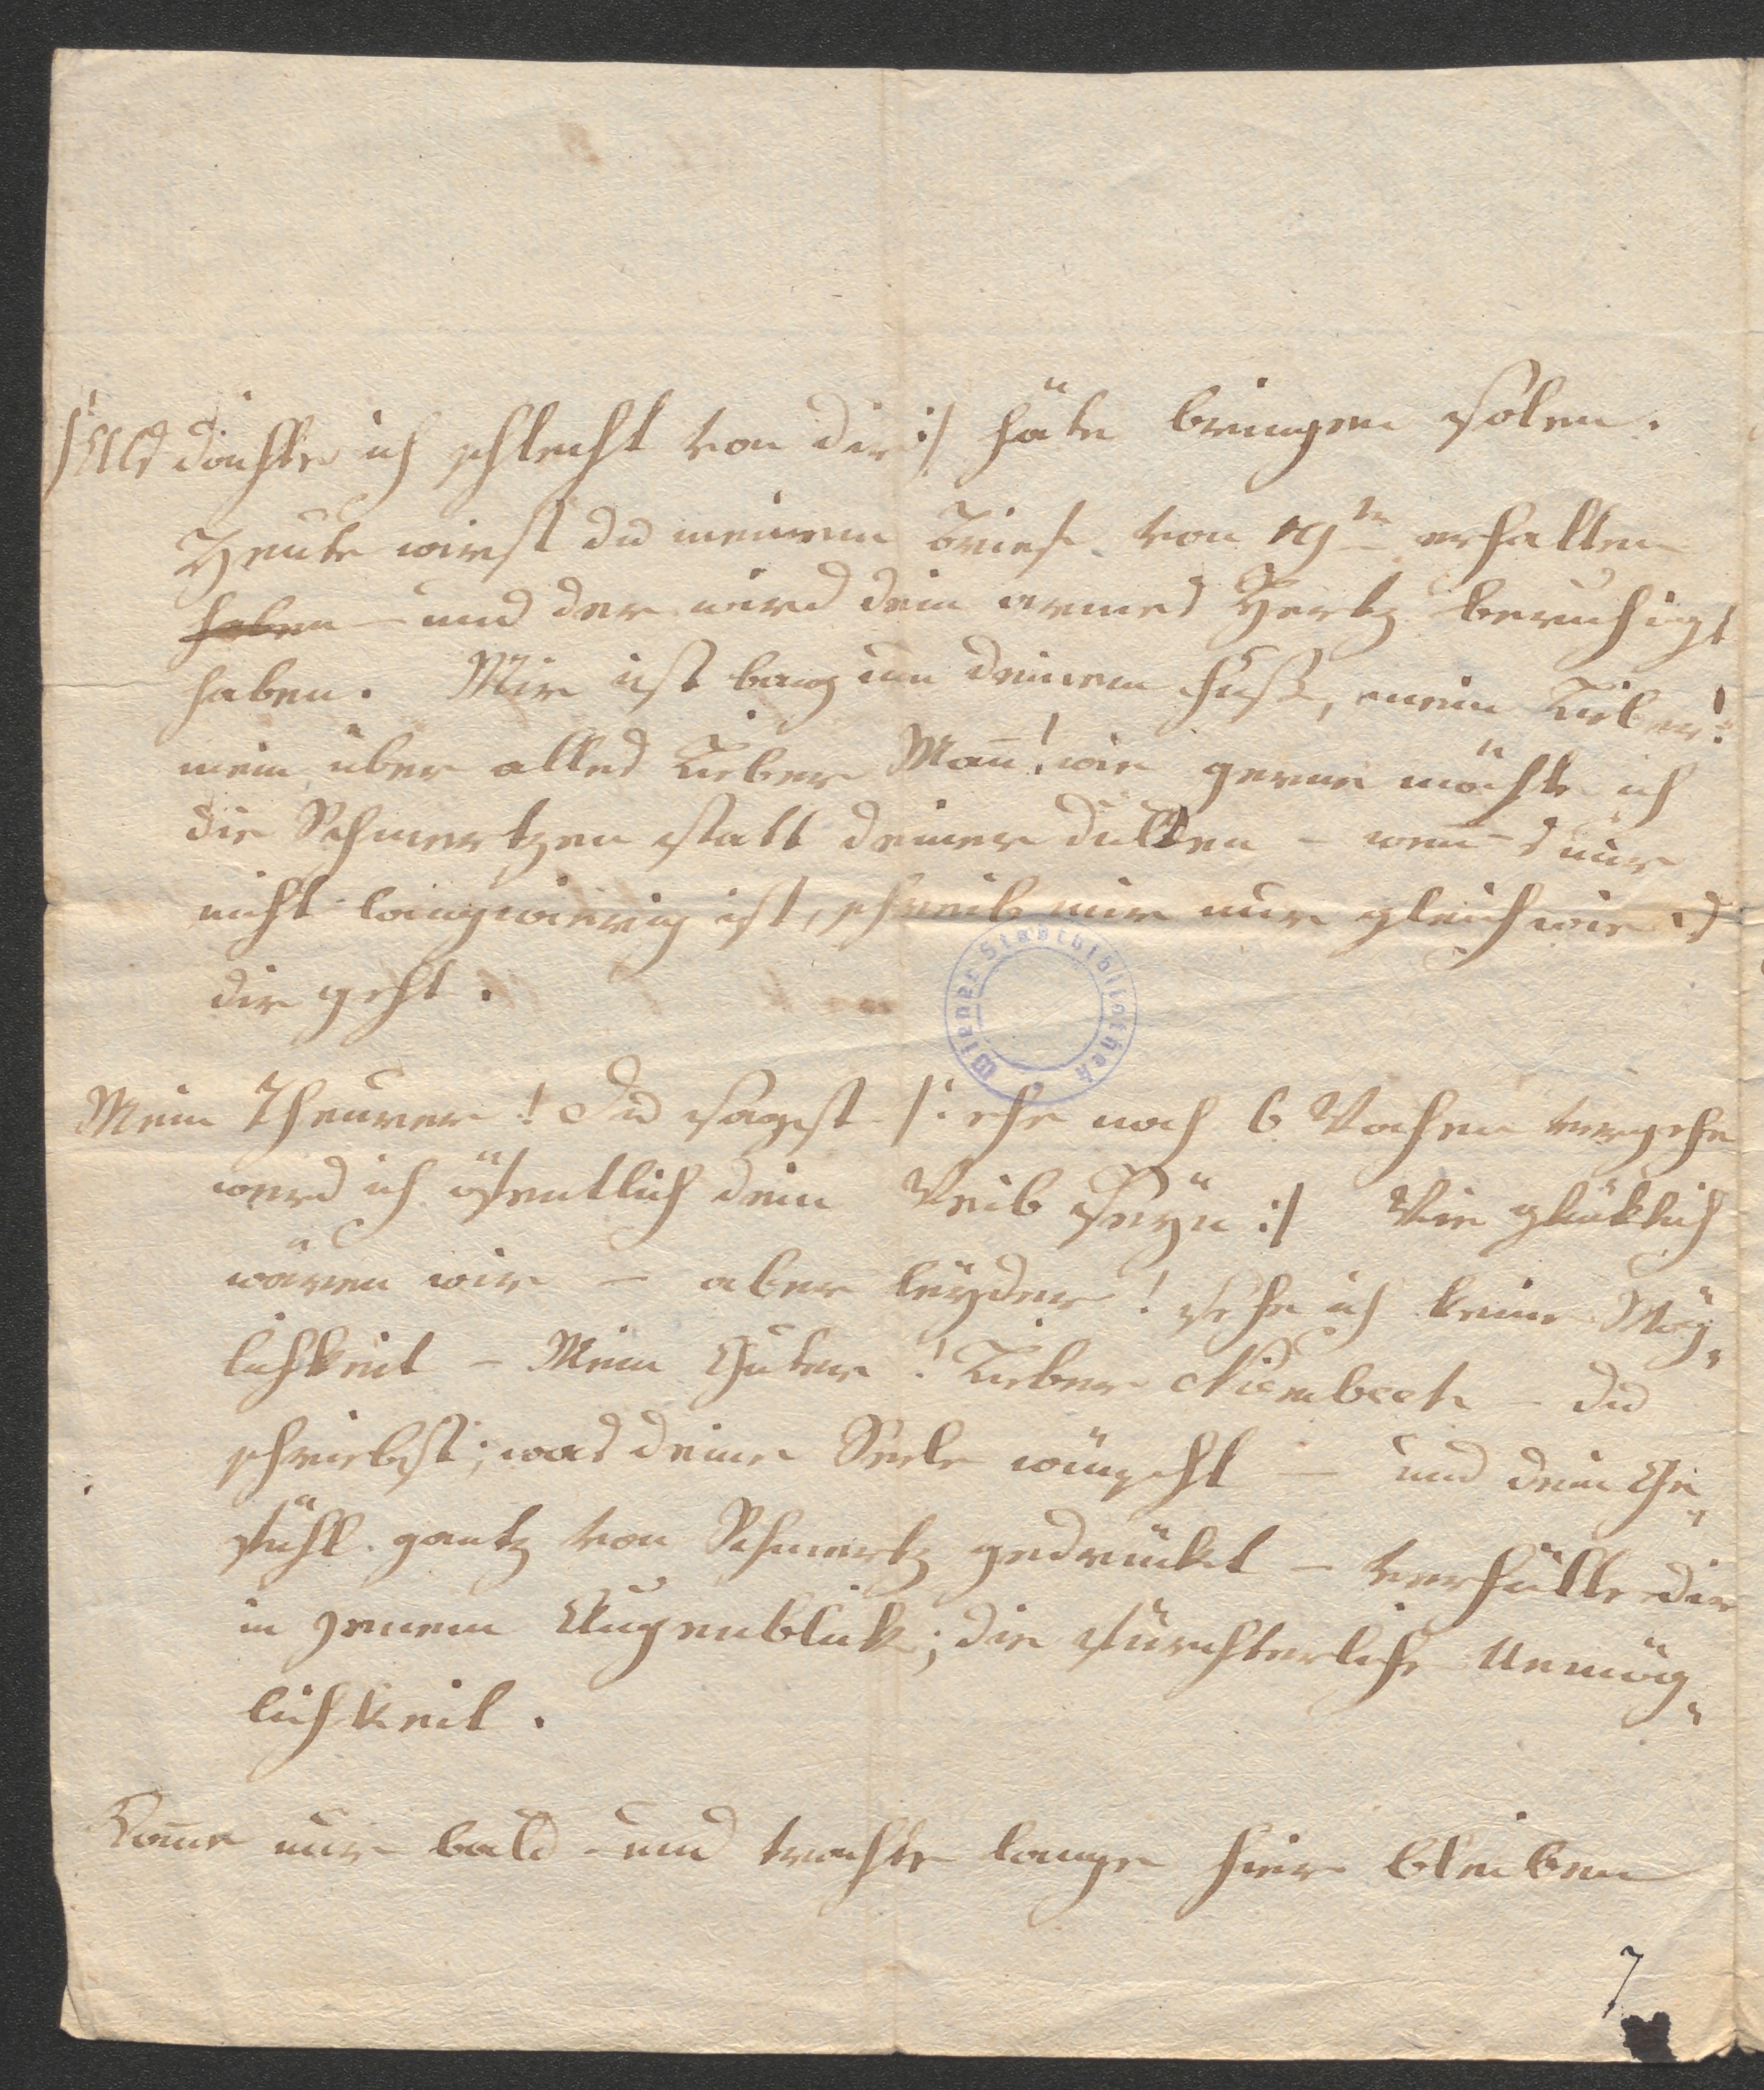 /: Als dächte ich schlecht von dir :/ häte bringen solen.
Heute wirst du meinem Brief von 19tn erhalten
haben – und der wird dein armes Hertz beruhigt
haben. Mir ist bang um deinem Fuß, mein Lieber!
mein über alles Lieber Man̄! wie gerne möchte ich
die Schmertzen statt deiner dulden – wen̄s nur
nicht langwierig ist, schreib mir nur gleich wie es
dir geht.
Mein Theurer! Du sagst /: ehe noch 6 Wochen vergehn
werd ich öfentlich dein Weib seyn :/ Wie glüklich
wären wir – aber leyder! sehe ich keine Mög„
lichkeit – Mein Guter! Lieber Niembsch – du
schriebst; was deine Seele wünscht – und dein Ge„
fühl gantz von Schmertz gedrückt – verhülle dir
in jenem Augenblick; die fürchterliche Unmög„
lichkeit.
Kom̄e nur bald – und trachte lange hier bleiben
7
Wiener Stadtbibliothek